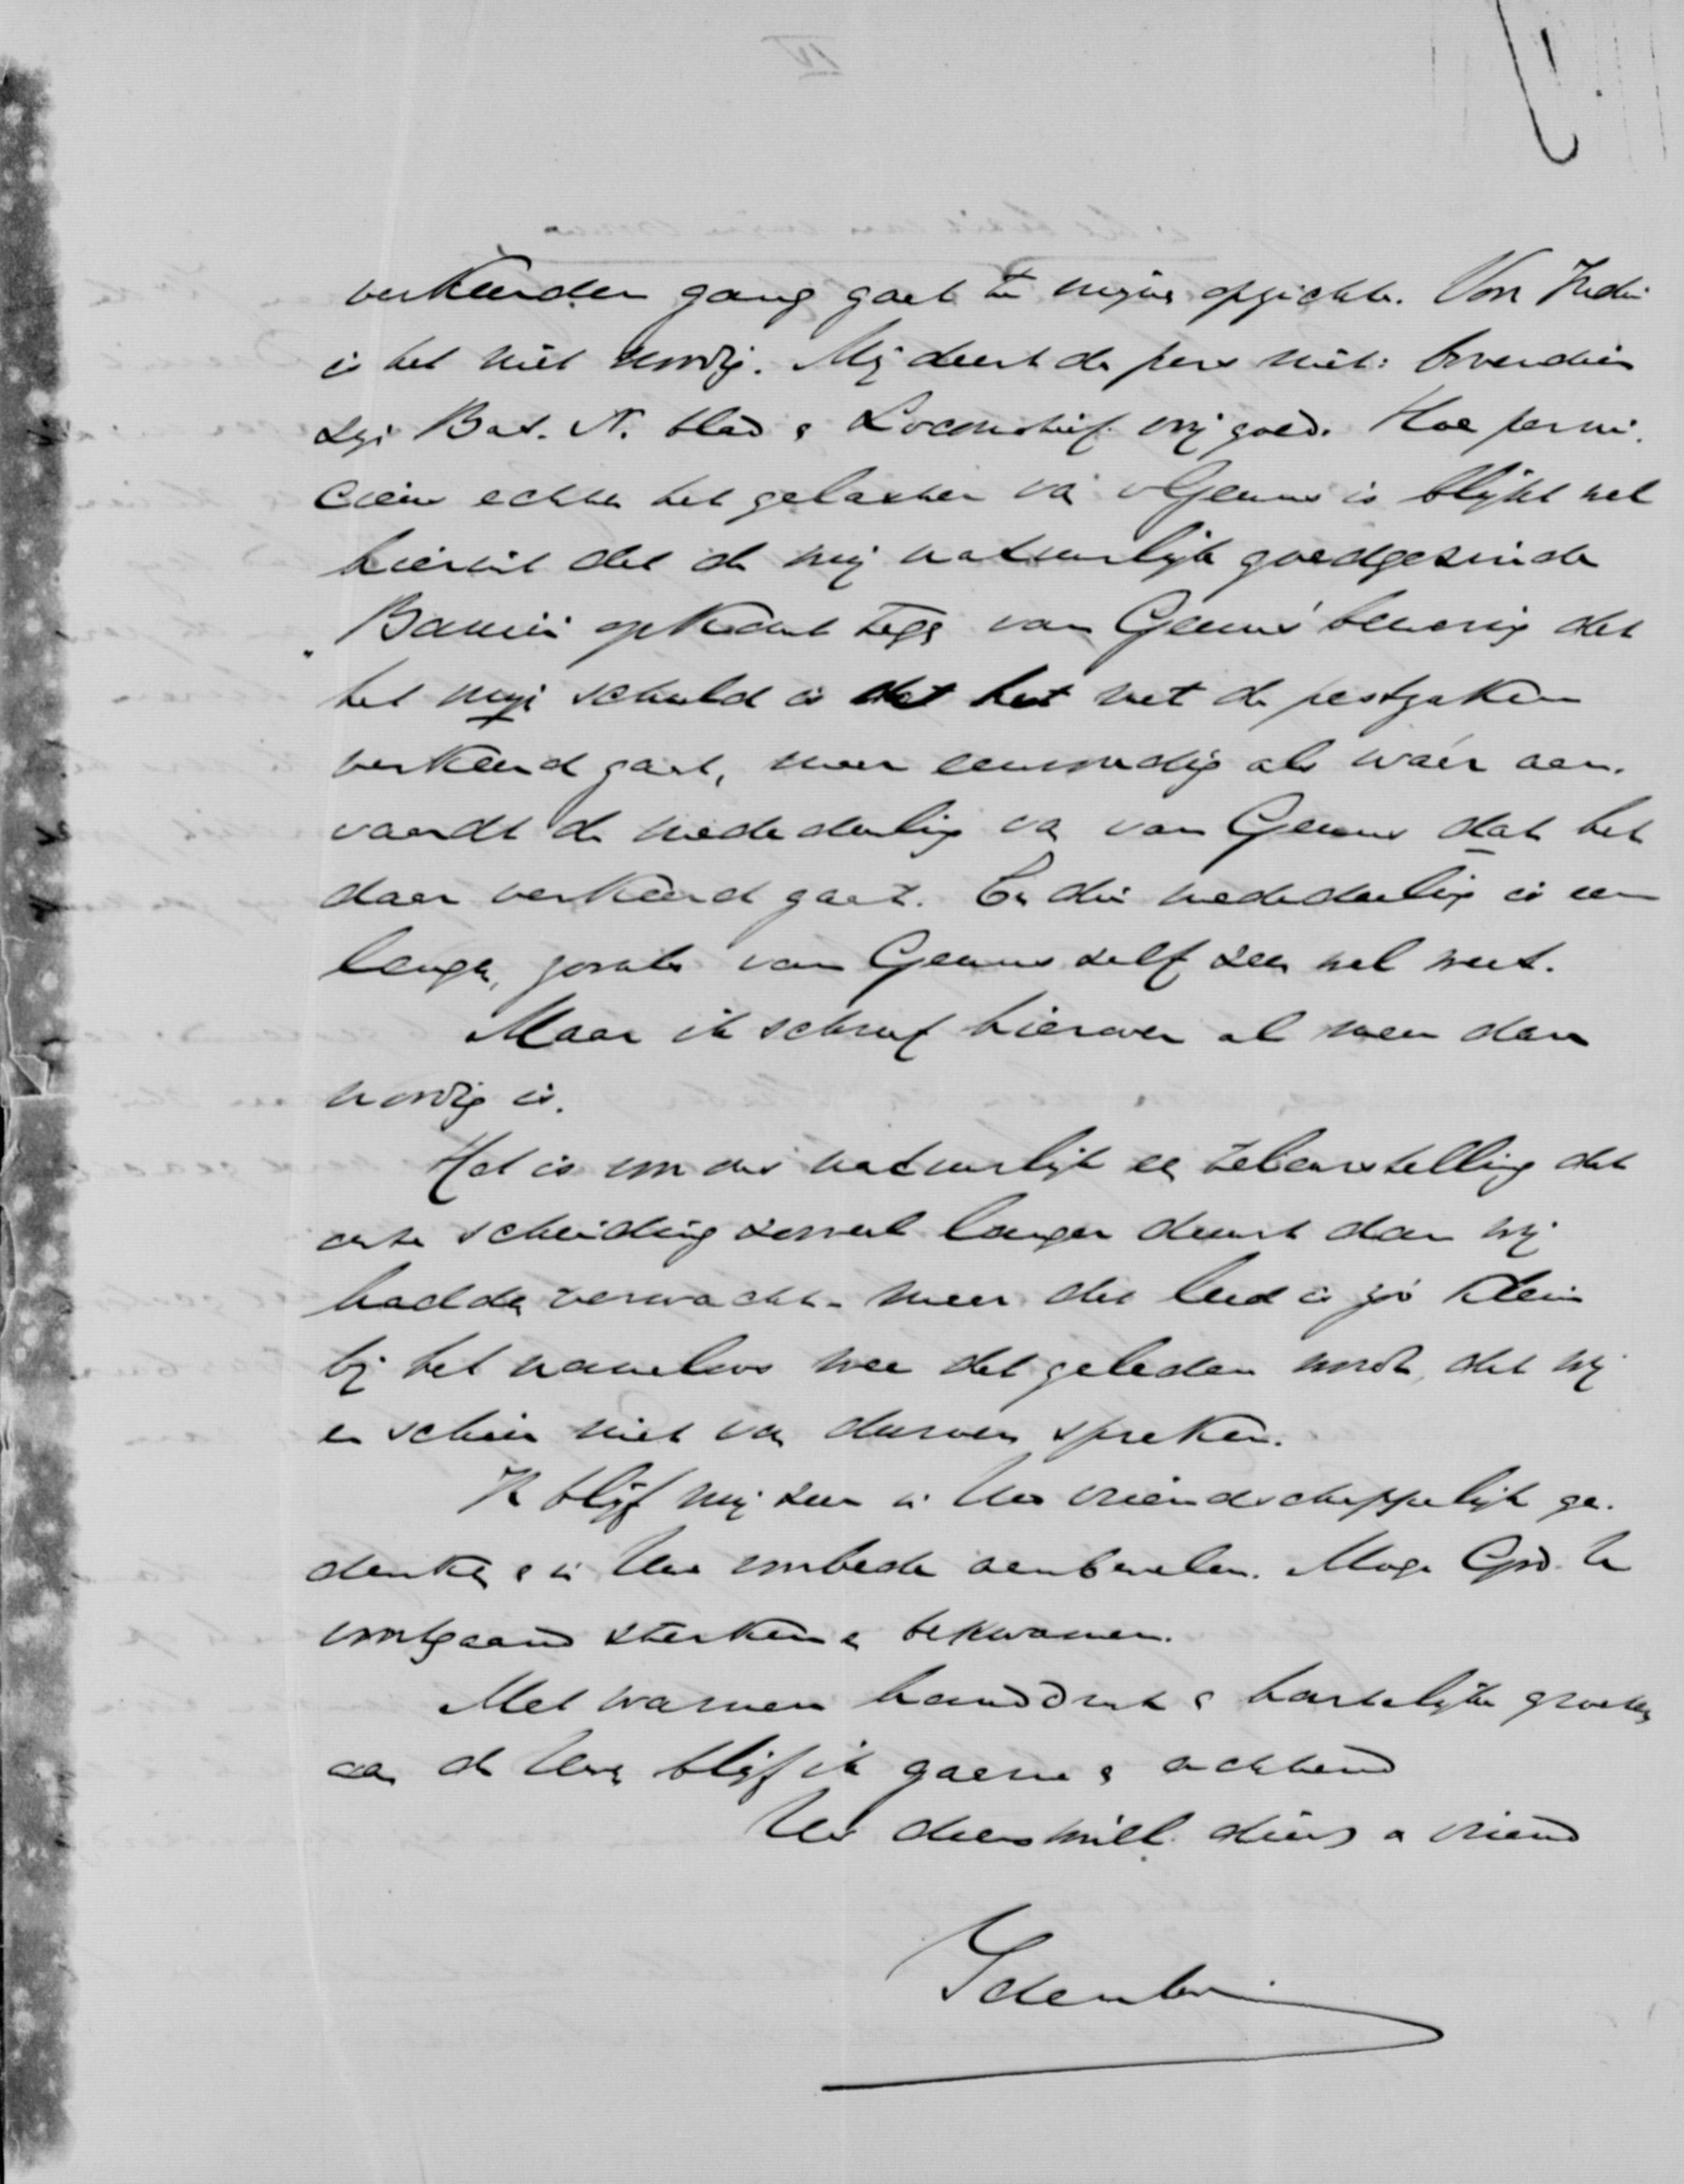 verkeerden gang gaat te mijnen opzichte. Voor Indië
is het niet noodig. Mij deert de pers niet: bovendien
zijn Bat. N. blad & Locomotief mij goed. Hoe perni-
cieus echter het gelaster van v Geuns is blijkt wel
hieruit dat de mij natuurlijk goedgezinde
"Banier" opkomt tegen van Geuns' bewering dat
het mijn schuld is dat het met de pestzaken
verkeerd gaat, maar eenvoudig als waar aan-
vaardt de mededeeling van van Geuns dat het
daar verkeerd gaat. En die mededeeling is een
leugen, zooals van Geuns zelf zeer wel weet.
Maar ik schreef hierover al meer dan
noodig is.
Het is voor ons natuurlijk een teleurstelling dat
onze scheiding zooveel langer duurt dan wij
hadden verwacht - maar dit leed is zoo klein
bij het nameloos wee dat geleden wordt, dat wij
er schier niet van durven spreken.
Ik blijf mij zeer in Uw vriendschappelijk ge-
denken & in Uw voorbede aanbevelen. Moge God U
voortgaand sterken & bekwamen.
Met warmen handdruk & hartelijke groeten
aan de Uwen blijf ik gaarne & achtend
Uw dienstwill. dienr & vriend
Idenburg